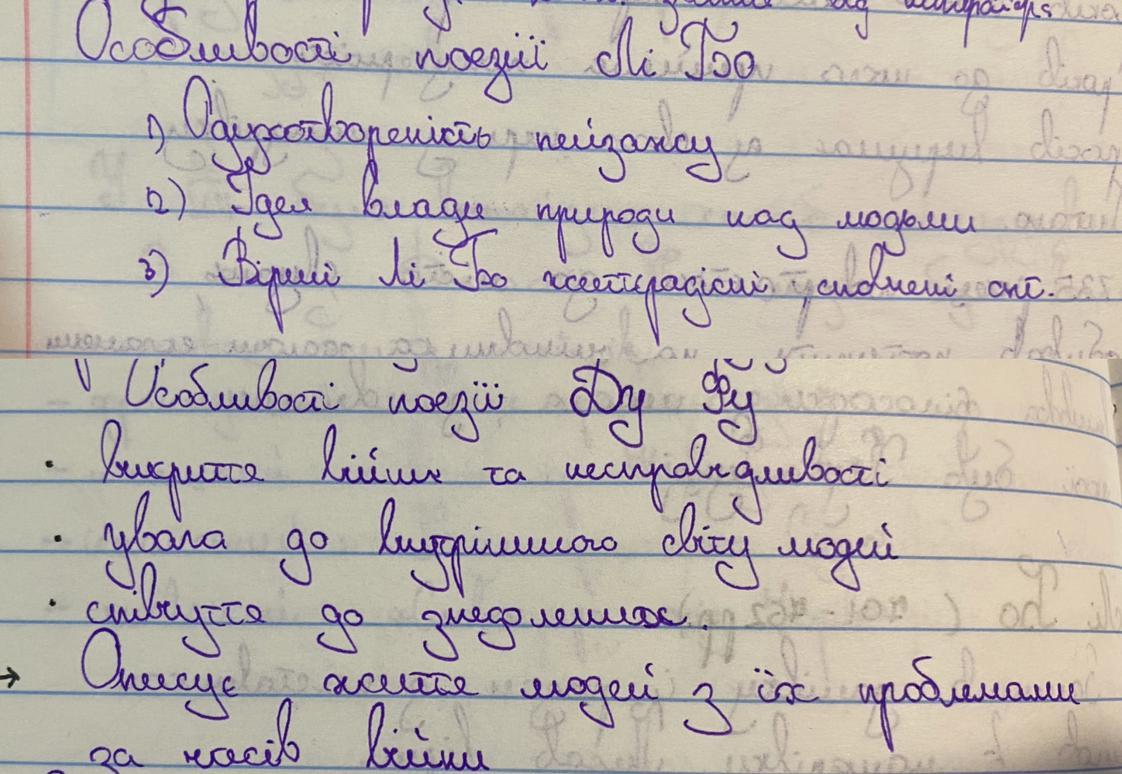 Особливості поезіїї Лі Бо
1) Одухотвореність пейзажу
2) Ідея влади природи над людьми
3) Вірші Лі Бо життєрадісні, сповнені опт.
Особливості поезіїї Ду Фу
· викриття війни та несправедливості
· увага до внутрішнього світу людей
· співчуття до знедолених.
→ Описує життя людей з їх проблемами
за часів війни